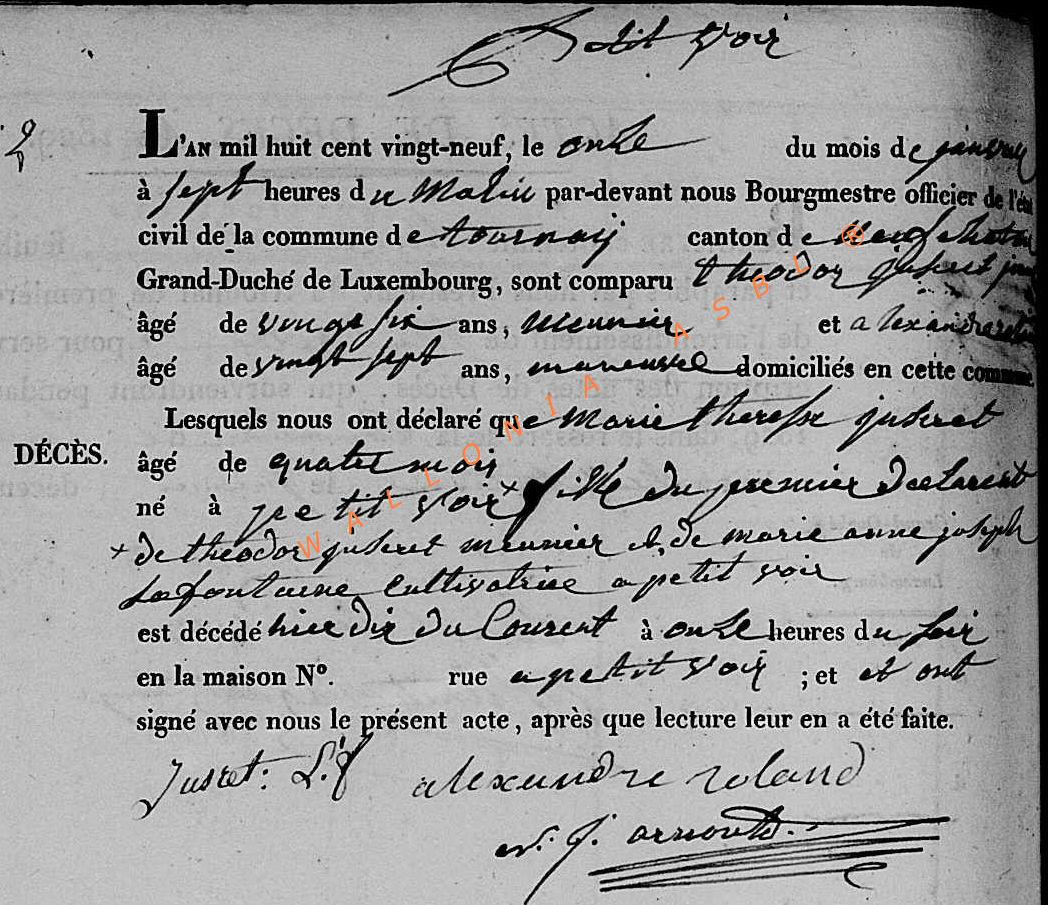 petit Voir
2
L'AN mil huit cent vingt-neuf, le onze du mois de janvier
à sept heures du Matin par-devant nous Bourgmestre officier de l'état
civil de la commune de tournay canton de neufchateau
Grand-Duché de Luxembourg, sont comparu theodor juseret
âgé de vingt six ans, meunier et alexandre
âgé de vingt sept ans, domiciliés en cette commune
Lesquels nous ont déclaré que Marie therese juseret
DÉCÈS. âgé de quatre mois
né à petit Voir + fille du premier declarent
+ de theodor juseret meunier et de marie anne joseph
lafontaine Cultivatrice a petit voir
est décédé hier dix du Courent à onze heures du soir
en la maison N°. rue a petit voir ; et et ont
signé avec nous le présent acte, après que lecture leur en a été faite.
Jusret. alexandre roland
arnould.
WALLONIA ASBL ®